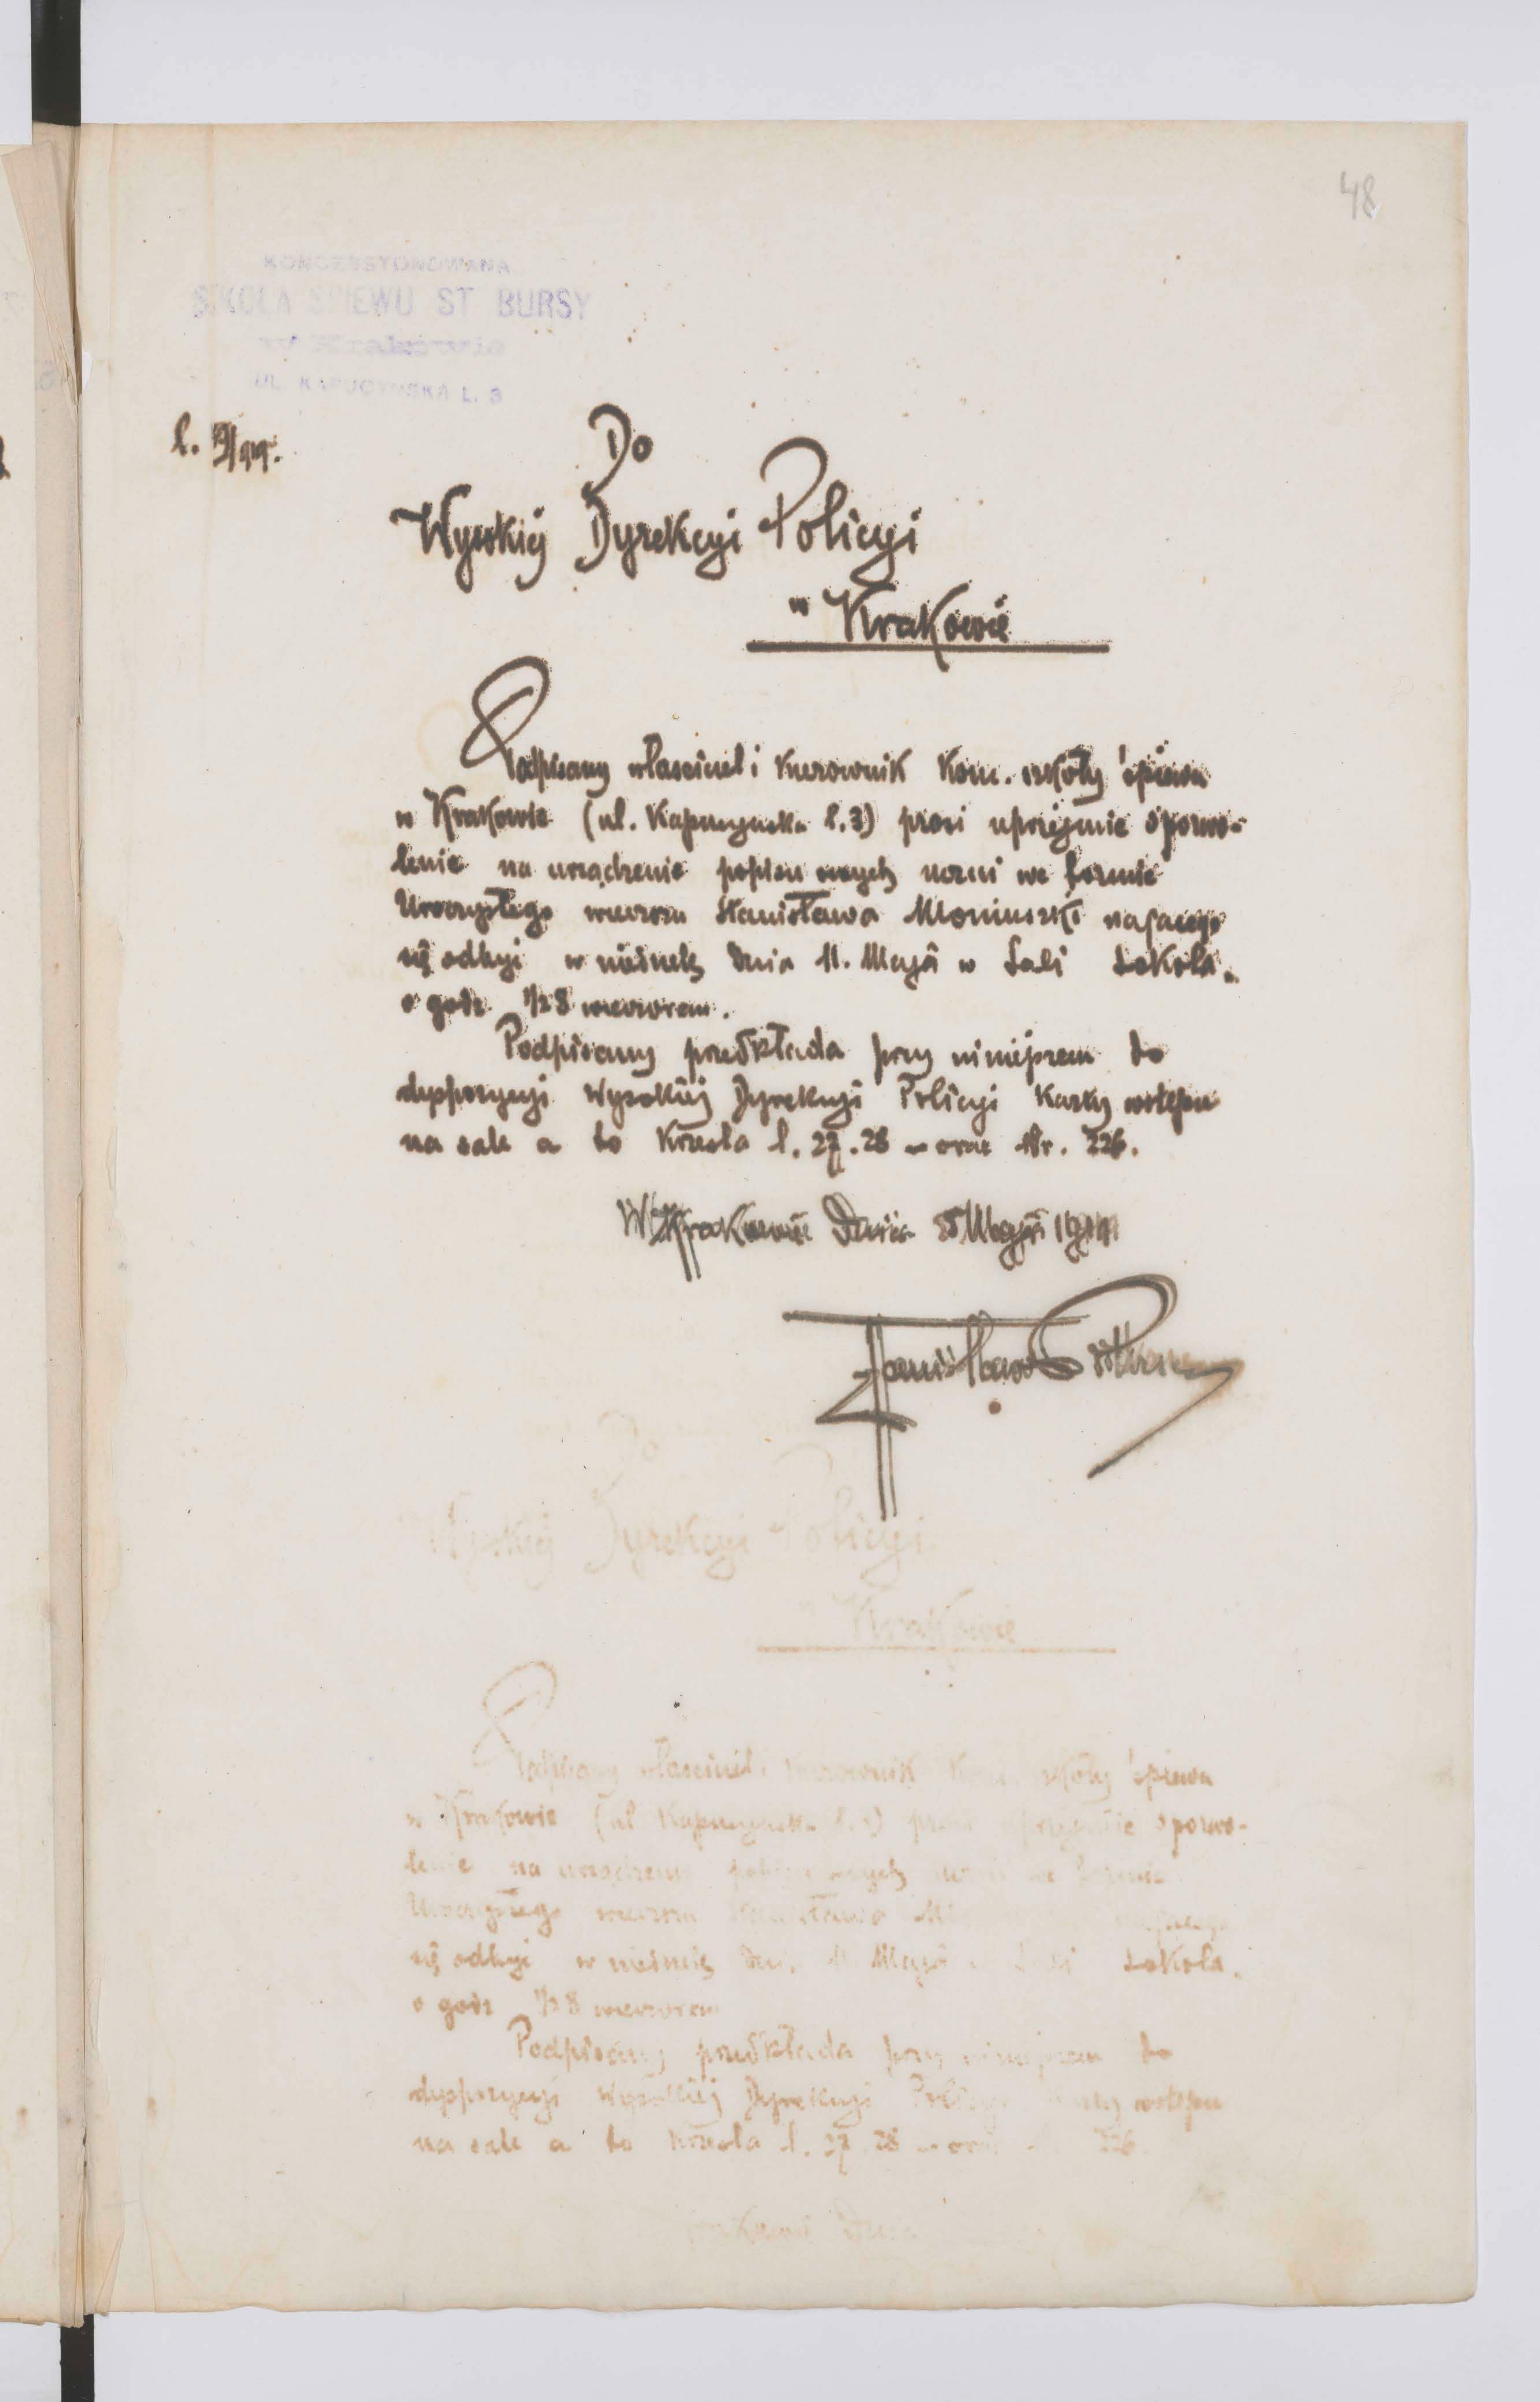 48
KONCESSYONOWANA
SZKOŁA ŚPIEWU ST BURSY
w Krakowie
UL. KAPUCYŃSKA L. 3
Do
Wysokiej Dyrekcyi Policyi
w Krakowie
Podpisany właściciel i kierownik konc. szkoły śpiewu
w Krakowie (ul. Kapucyńska l. 3) prosi uprzejmie o pozwo-
lenie na urządzenie popisu swych uczni we formie
Uroczystego wieczoru Stanisława Moniuszki mającego
się odbyć w niedzielę dnia 11. Maja w Sali Sokoła
o godz 1/2 8 wieczorem.
Podpisany przedkłada przy niniejszem do
dyspozycyi Wysokiej Dyrekcyi Policyi karty wstępu
na salę a to krzesła l. 27. 28 oraz Nr. 226.
W Krakowie Dnia Maja
Stanisław Bursa
Wysokiej Dyrekcyi Policyi
w Krakowie
Podpisany właściciel kierownik szkoły śpiewu
w Krakowie (ul Kapucyńska l. 3) o pozwo-
lenie na urządzenie swych we formie
Uroczystego wieczoru Stanisława
się odbyć w niedzielę Maja Sokoła.
o godz 1/2 8 wieczorem
Podpisany przedkłada przy niniejszem do
dyspozycyi Wysokiej Dyrekcyi wstępu
na salę a to krzesła l. 27 28 226
Dnia